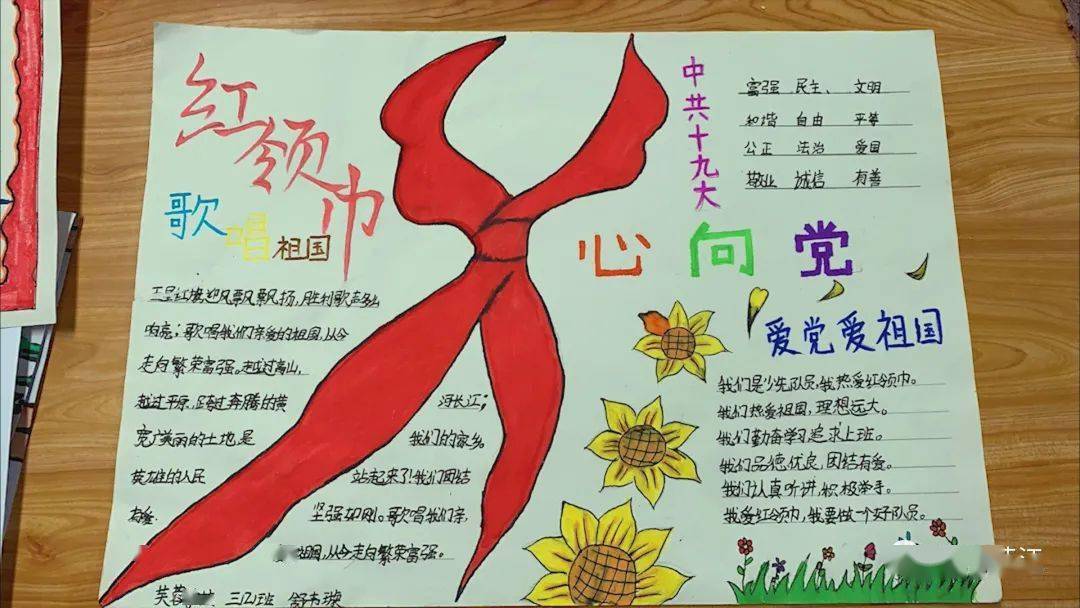 红领巾
歌唱祖国
五星红旗迎风飘飘扬,胜利歌声多么
响亮;歌唱我们亲爱的祖国,从今
走向繁荣富强。越过高山,
越过平原,跨过奔腾的黄河长江;
宽广美丽的土地,是我们的家乡
英雄的人民站起来了!我们团结
坚强如刚。歌唱我们亲,
祖国,从今走向繁荣富强。
芙蓉
三班
中共十九大
富强 民主、 文明
和谐 自由 平等
公正 法治 爱国
敬业 诚信 有善
心向党
爱党爱祖国
我们是少先队员,我热爱红领巾。
我们热爱祖国,理想远大。
我们勤奋学习,追求上班。
我们品德优良,团结有爱。
我们认真听讲,积极举手。
我爱红领巾,我要做一个好队员。